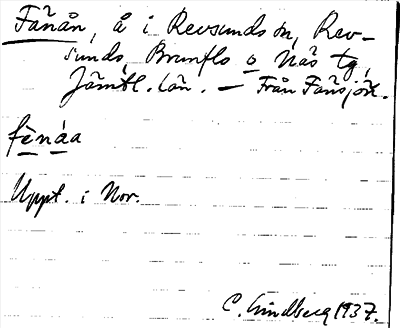 Fanån, å i Revsunds sn, Rev-
sunds, Brunflo o Näs tg,
Jämtl. län. — Från Fansjön.
fènáa
Uppt. i Nor.
C. Lindberg 1937.